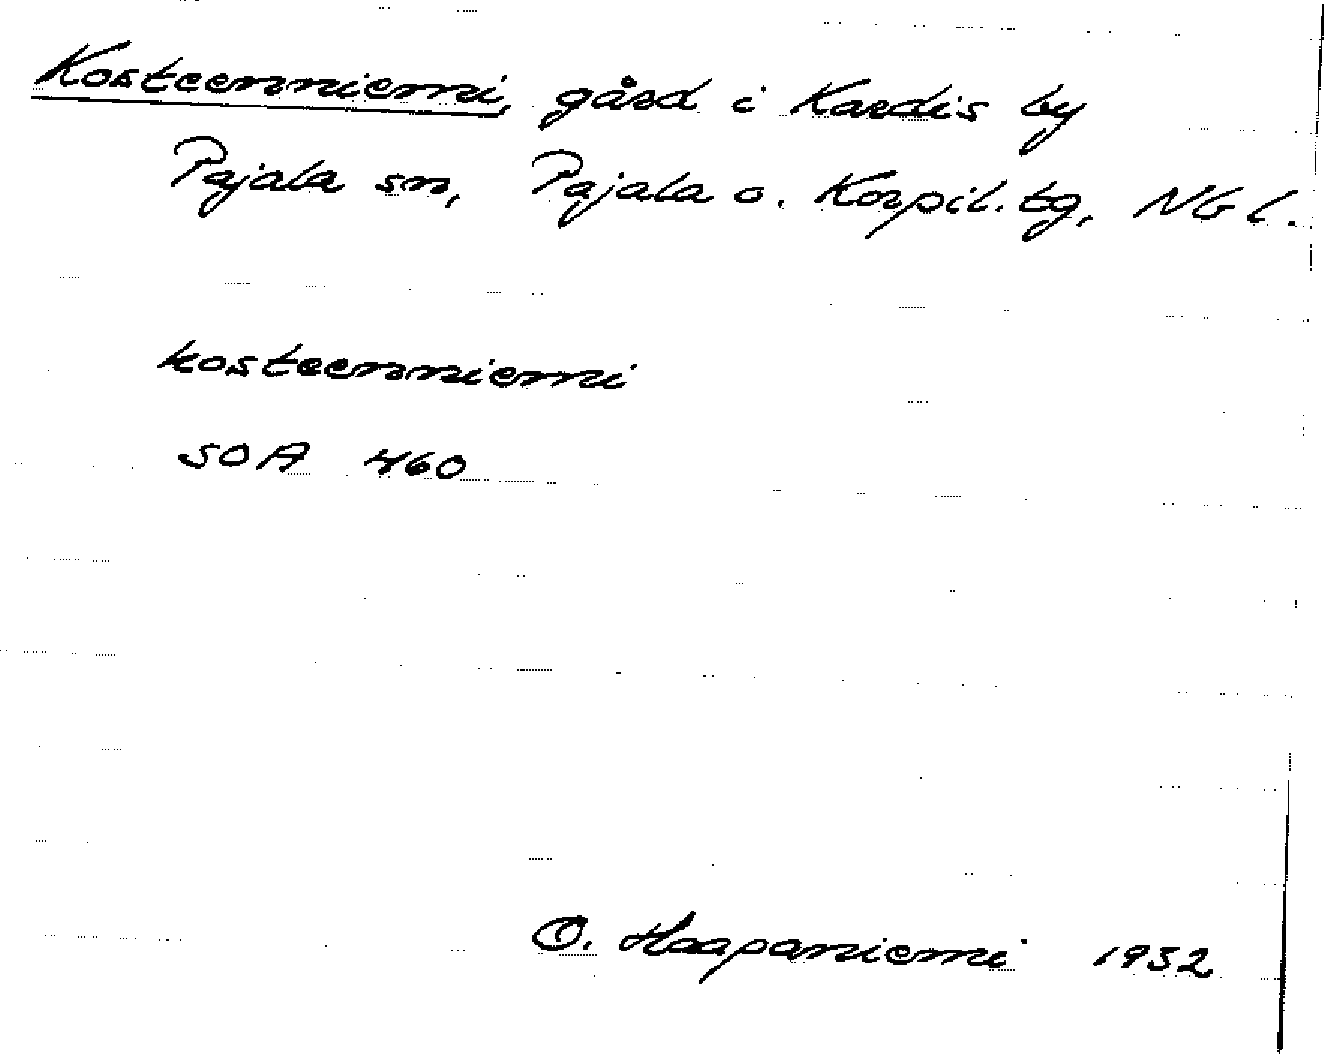 Kosteenniemi, gård i Kardis by
Pajala sn, Pajala o. Korpil. tg, NGl.
kosteenniemi
SOA 460
O. Haapaniemi 1952